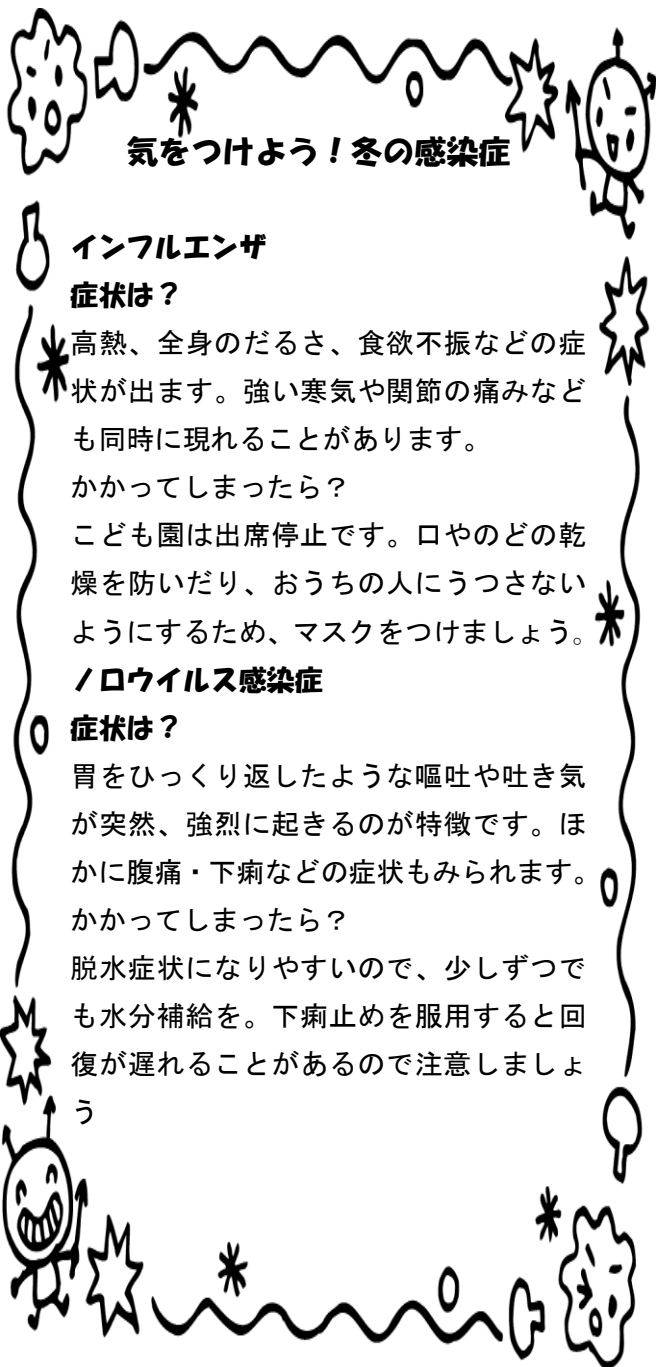 気をつけよう！冬の感染症
インフルエンザ
症状は？
高熱、全身のだるさ、食欲不振などの症
状が出ます。強い寒気や関節の痛みなど
も同時に現れることがあります。
かかってしまったら？
こども園は出席停止です。口やのどの乾
燥を防いだり、おうちの人にうつさない
ようにするため、マスクをつけましょう。
ノロウイルス感染症
症状は？
胃をひっくり返したような嘔吐や吐き気
が突然、強烈に起きるのが特徴です。ほ
かに腹痛・下痢などの症状もみられます。
かかってしまったら？
脱水症状になりやすいので、少しずつで
も水分補給を。下痢止めを服用すると回
復が遅れることがあるので注意しましょ
う